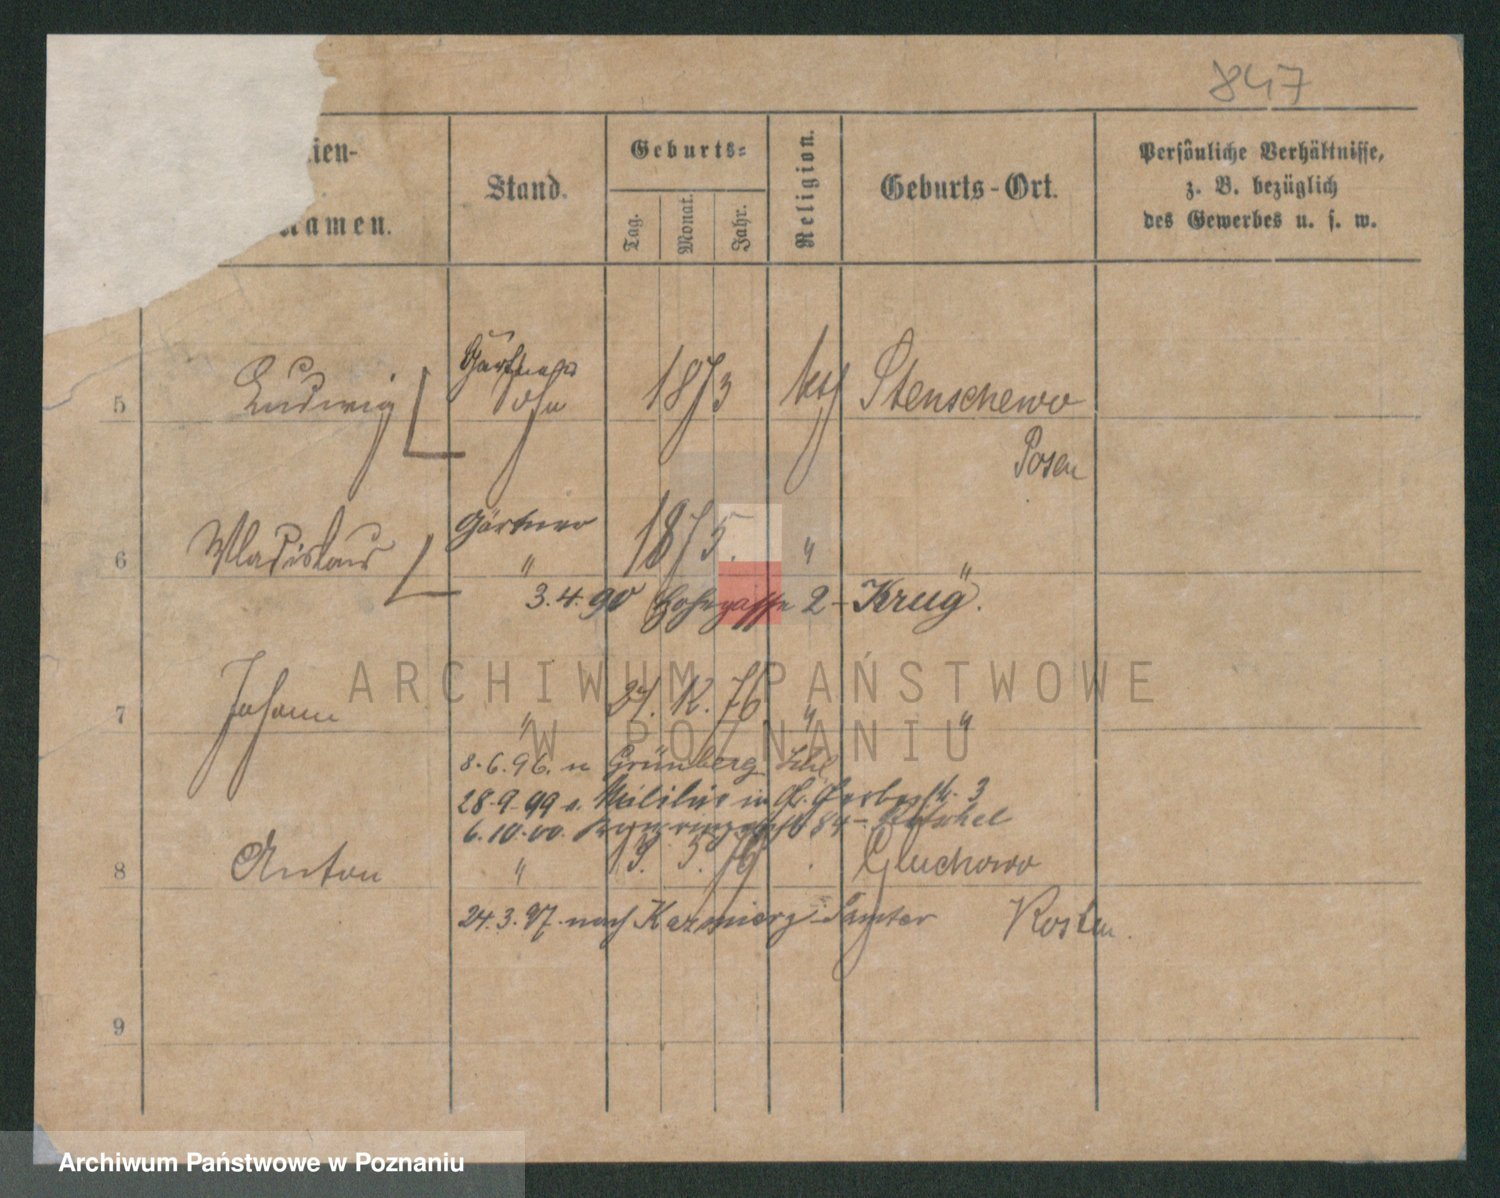 847
ien-
amen.
Stand.
Geburts-
Tag.
Monat.
Jahr.
Religion.
Geburts-Ort.
Persönliche Verhältnisse,
z. B. bezüglich
des Gewerbes u. s. w.
5 Ludwig 1873 kath Stenschewo
sohn
Posen
6 Wladislaus Gärtner 1875. "
" "
3.4.90 2 - Krug.
7 Johann " 27. 12. 76 " "
8.6.96. n Grünberg Schl
28.9.99 v. Militär in 3
6.10.00. 84
8 Anton " 9. 5. 79 Gluchowo
24.3.97. nach Kazmierz Samter Kosten.
9
ARCHIWUM PAŃSTWOWE
W POZNANIU
Archiwum Państwowe w Poznaniu